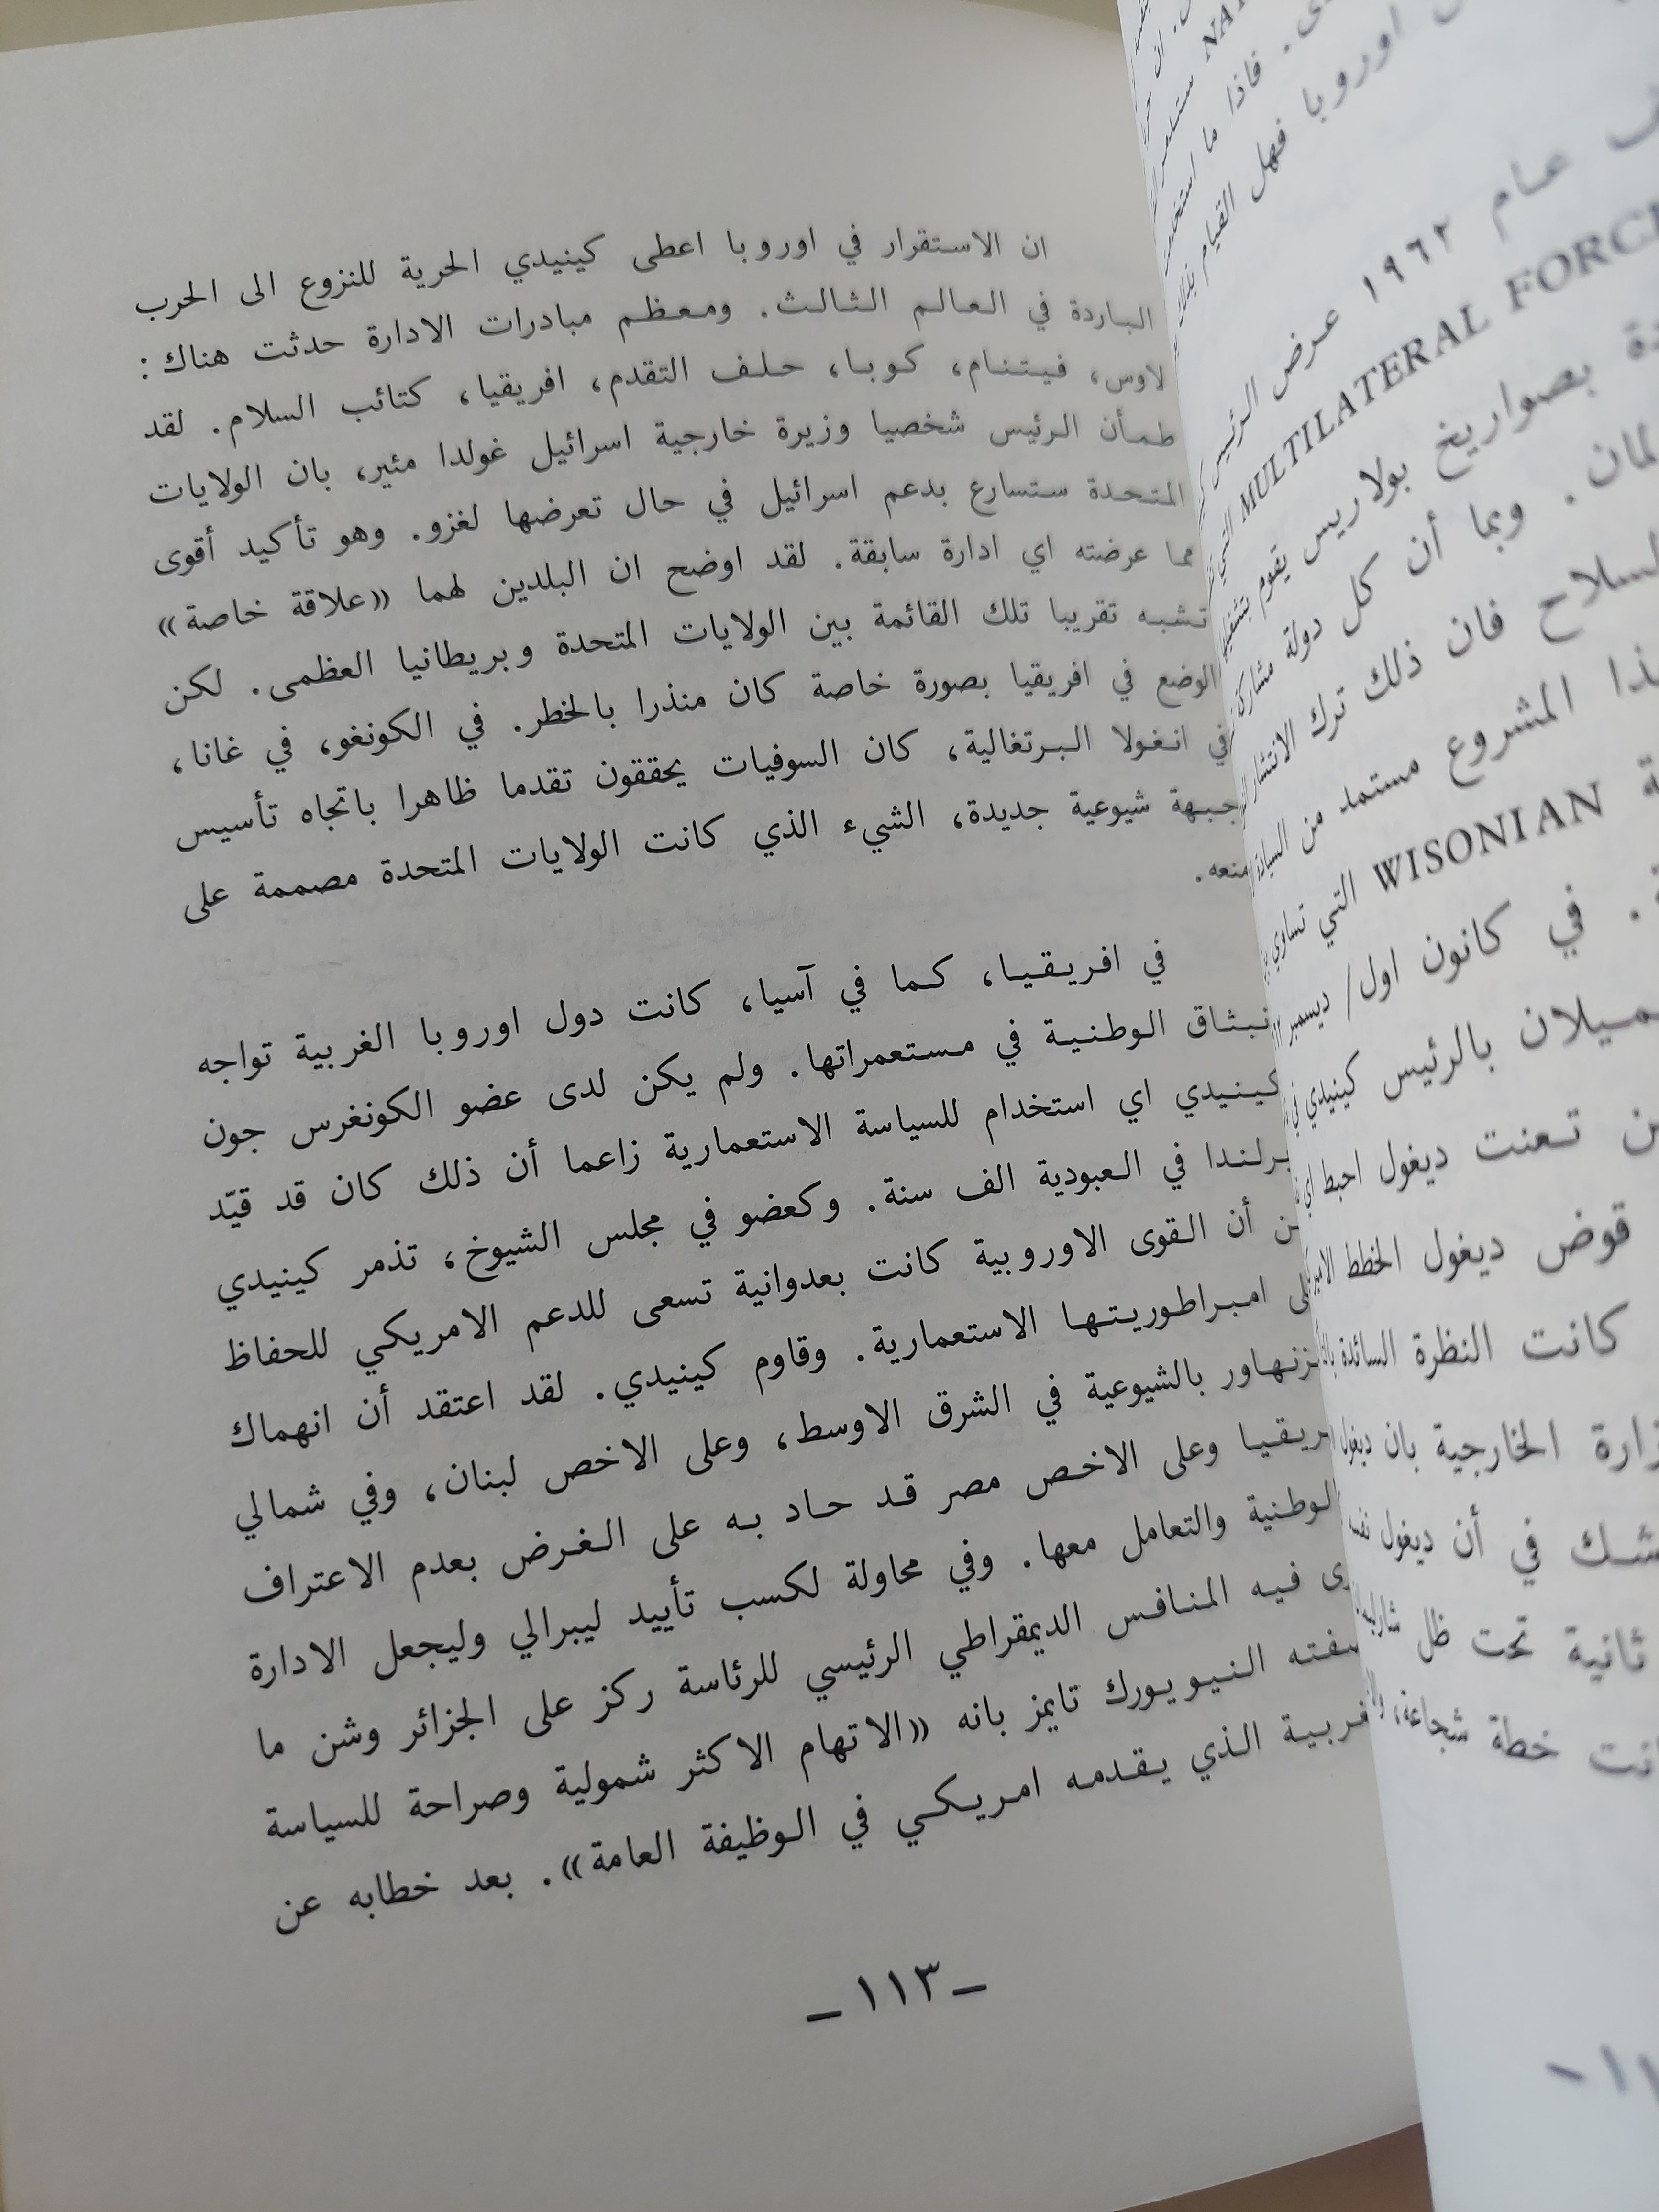 ان الاستقرار في اوروبا اعطى كينيدي الحرية للنزوع الى الحرب
الباردة في العالم الثالث. ومعظم مبادرات الادارة حدثت هناك:
لاوس، فيتنام، كوبا، حلف التقدم، افريقيا، كتائب السلام. لقد
طمأن الرئيس شخصيا وزيرة خارجية اسرائيل غولدا مئير، بان الولايات
المتحدة ستسارع بدعم اسرائيل في حال تعرضها لغزو. وهو تأكيد أقوى
مما عرضته اي ادارة سابقة. لقد اوضح ان البلدين لهما «علاقة خاصة»
تشبه تقريبا تلك القائمة بين الولايات المتحدة وبريطانيا العظمى. لكن
الوضع في افريقيا بصورة خاصة كان منذرا بالخطر. في الكونغو، في غانا،
في انغولا البرتغالية، كان السوفيات يحققون تقدما ظاهرا باتجاه تأسيس
جبهة شيوعية جديدة، الشيء الذي كانت الولايات المتحدة مصممة على
منعه.
في افريقيا، كما في آسيا، كانت دول اوروبا الغربية تواجه
نبثاق الوطنية في مستعمراتها. ولم يكن لدى عضو الكونغرس جون
كينيدي اي استخدام للسياسة الاستعمارية زاعما أن ذلك كان قد قيّد
يرلندا في العبودية الف سنة. وكعضو في مجلس الشيوخ، تذمر كينيدي
ن أن القوى الاوروبية كانت بعدوانية تسعى للدعم الامريكي للحفاظ
لى امبراطوريتها الاستعمارية. وقاوم كينيدي. لقد اعتقد أن انهماك
يزنهاور بالشيوعية في الشرق الاوسط، وعلى الاخص لبنان، وفي شمالي
ريقيا وعلى الاخص مصر قد حاد به على الغرض بعدم الاعتراف
لوطنية والتعامل معها. وفي محاولة لكسب تأييد ليبرالي وليجعل الادارة
رى فيه المنافس الديمقراطي الرئيسي للرئاسة ركز على الجزائر وشن ما
سفته النيويورك تايمز بانه «الاتهام الاكثر شمولية وصراحة للسياسة
غربية الذي يقدمه امريكي في الوظيفة العامة». بعد خطابه عن
ـ ١١٣ ـ
فاذا ما
اوروبا فهل القيام بذلك
عام ١٩٦٢ عرض الرئيس
MULTILATERAL FORCE
بصواريخ بولاريس يقوم
لمان. وبما أن كل دولة مشاركة
السلاح فان ذلك ترك الانتشار
المشروع مستمد من
WISONIAN التي تساوي
في كانون اول/ ديسمبر
ميلان بالرئيس كينيدي
تعنت ديغول احبط اي
قوض ديغول الخطط
كانت النظرة السائدة
الخارجية بان ديغول
شك في أن ديغول نفسه
ثانية تحت ظل
خطة شجاعة،